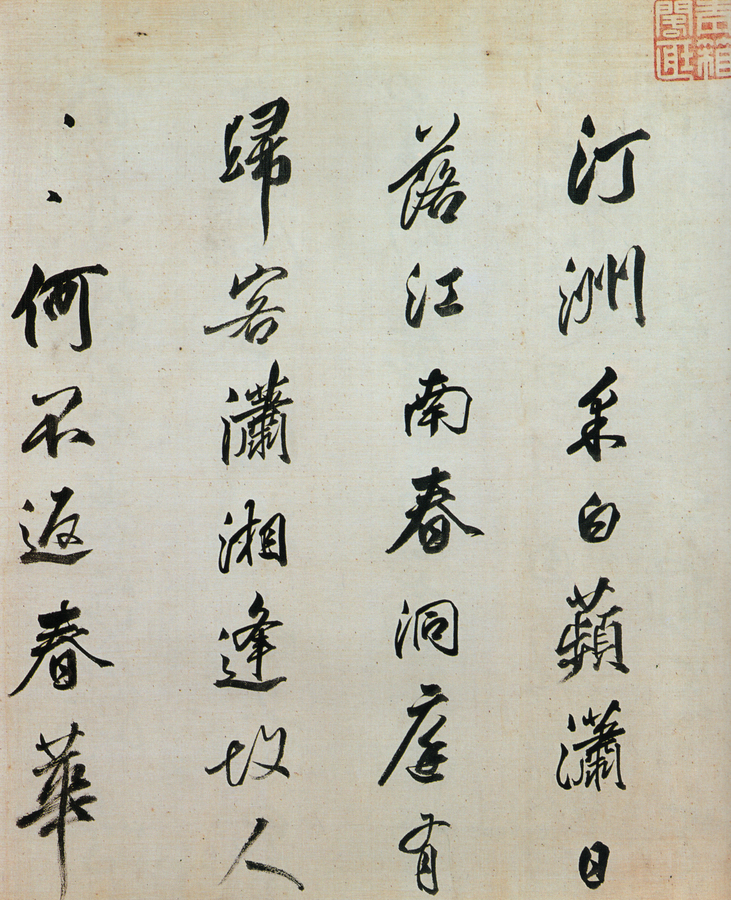 汀洲采白蘋瀟日
落江南春洞庭有
歸客瀟湘逢故人
々々何不返春華